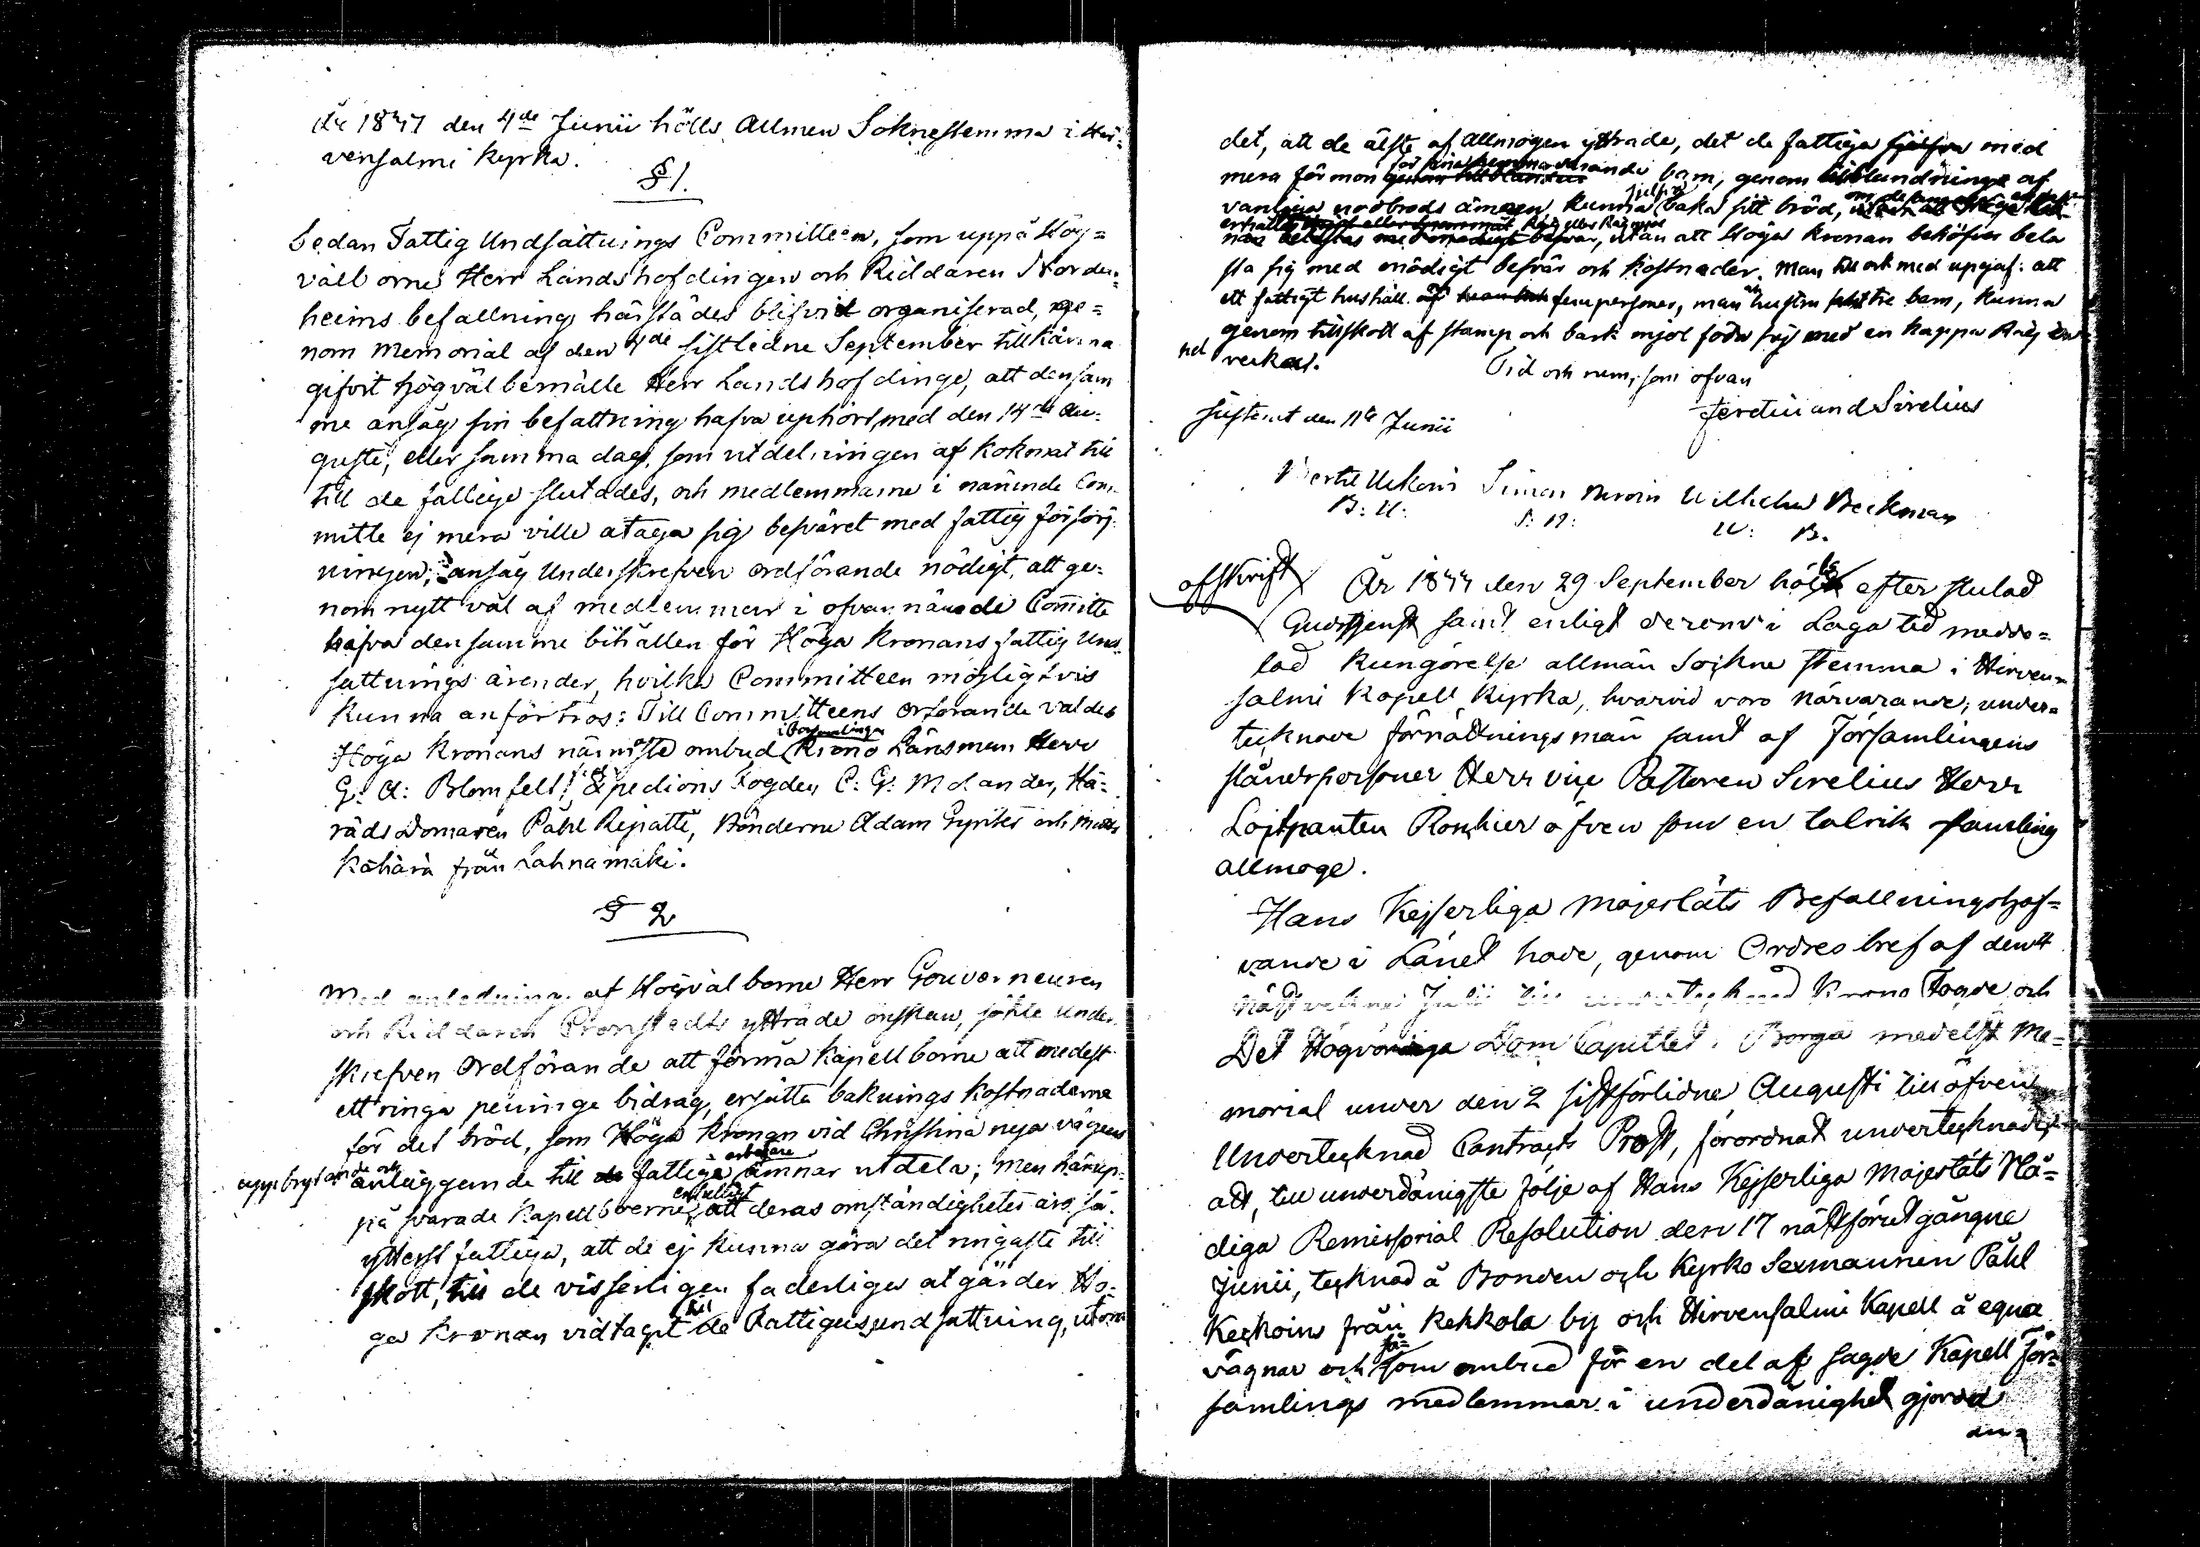 År 1847 den 4de Junii hölls Allmen Soknestemma i Hir-
vensalmi kyrka.
§ 1.
Sedan Fattig Undsättnings Committéen, som uppå Hög=
väll borne Herr Landshöfdingens och Riddaren Norden-
heims befallning härstädes blifvit organiserad, ge=
nom Memorial af den 4de sistledne September tillkänna
gifvit högvälbemälte Herr Landshöfdinge, att densam
me ansåg sin befattning hafva uphört med den 14de Au-
gusti, eller samma dag, som utdelningen af kokmat till
till de fattige slutades, och medlemmarne i nämnde Com-
mitté ej mera ville åtaga sig besväret med fattig försörj-
ningen; ansåg Underskrefven ordförande nödigt, att ge-
nom nytt val af medlemmar i ofvannämnde Committé
hafva densamme bihållen för Höga Kronans fattig und-
sättnings ärender, hvilka Committeen möjligtvis
kunna anförtros: Till Committeens ordförande valdes
i Församlingen
Höga Kronans närmste ombud Krono Länsman Herr
G: A: Blomfelt, Expedions Fogden C: G: Molander, Hä-
rads Domaren Påhl Ripatti, Bönderne Adam Gynther och Matts
Kähärä från Lahnamäki.
§ 2
Med anledning af Högvälborne Herr Gouverneuren
och Riddaren Cronstedts yttrade önskan, sökte under-
skrefven Ordförande att förmå Kapellborne att medelst
ett ringa penninge bidrag, ersätta baknings kostnaderne
för det bröd, som Höga Kronan vid Christina nya vägens
uppbrytande och
arbetare
anläggande till de fattiga ämnar utdela; men härup-
enhälligt
på svarade Kapellboerne, att deras omständigheter äro så
ytterst fattiga, att de ej kunna göra det ringaste till
skott, till de visserligen faderliga åtgärder Hö-
till
ga Kronan vidtagit de Fattigas undsättning, utom
det, att de älste af Allmogen yttrade, det de fattiga sjelfva med
mera förmon för sina hemmavarande barn, genom utblandning af
sjelfva
vanliga nödbröds ämnen kunna baka sitt bröd,
utan att Höga Kronan behöfver bela
sta sig med onödigt besvär och kostnader. Man till och med uppgaf: att
ett fattigt hushåll af fem personer, man och hustru samt tre barn, kunna
genom tillskott af stamp och bark mjöl föda sig med en kappa Råg i en
hel veckas.
Tid och rum, som ofvan
Ferdinand Sirelius
Justerat den 11te Junii
Bertil Ukkoin Simon Wilhelm Beckman
B: U: S: W: B.
Afskrift
År 1847 den 29 September hölls efter slutad
Gudstjenst samt enligt derom i Laga tid medde=
lad Kungörelse allmän Sockne stemma i Hirven=
salmi Kapell Kyrka, hvarvid voro närvarande, under=
tecknade förrättningsmän samt af Församlingens
ståndspersoner Herr vice Pastoren Sirelius Herr
Lojtnanten äfven som en talrik samling
allmoge.
Hans Kejserliga Majestäts Befallningshaf=
vande i Länet hade, genom Ordres bref af den 14
näst vekne Julii till undertecknad Krono Fogde och
Det Högvördiga Dom Capitlet i Borgå medelst Me=
morial under den 2 sistförlidne Augusti till äfven
Undertecknad Contracts Prost, förordnat undertecknade
att, till underdånigste följe af Hans Kejserliga Majestäts Nå=
diga Remissorial Resolution den 17 nästförut gångne
Junii, tecknad å Bonden och Kyrko Sexmannen Påhl
Keckoins från Kekkola by och Hirvensalmi Kapell å egna
vägnar och som ombud för en del af sagde Kapell för=
samlings medlemmar i underdånighet gjorda
an=